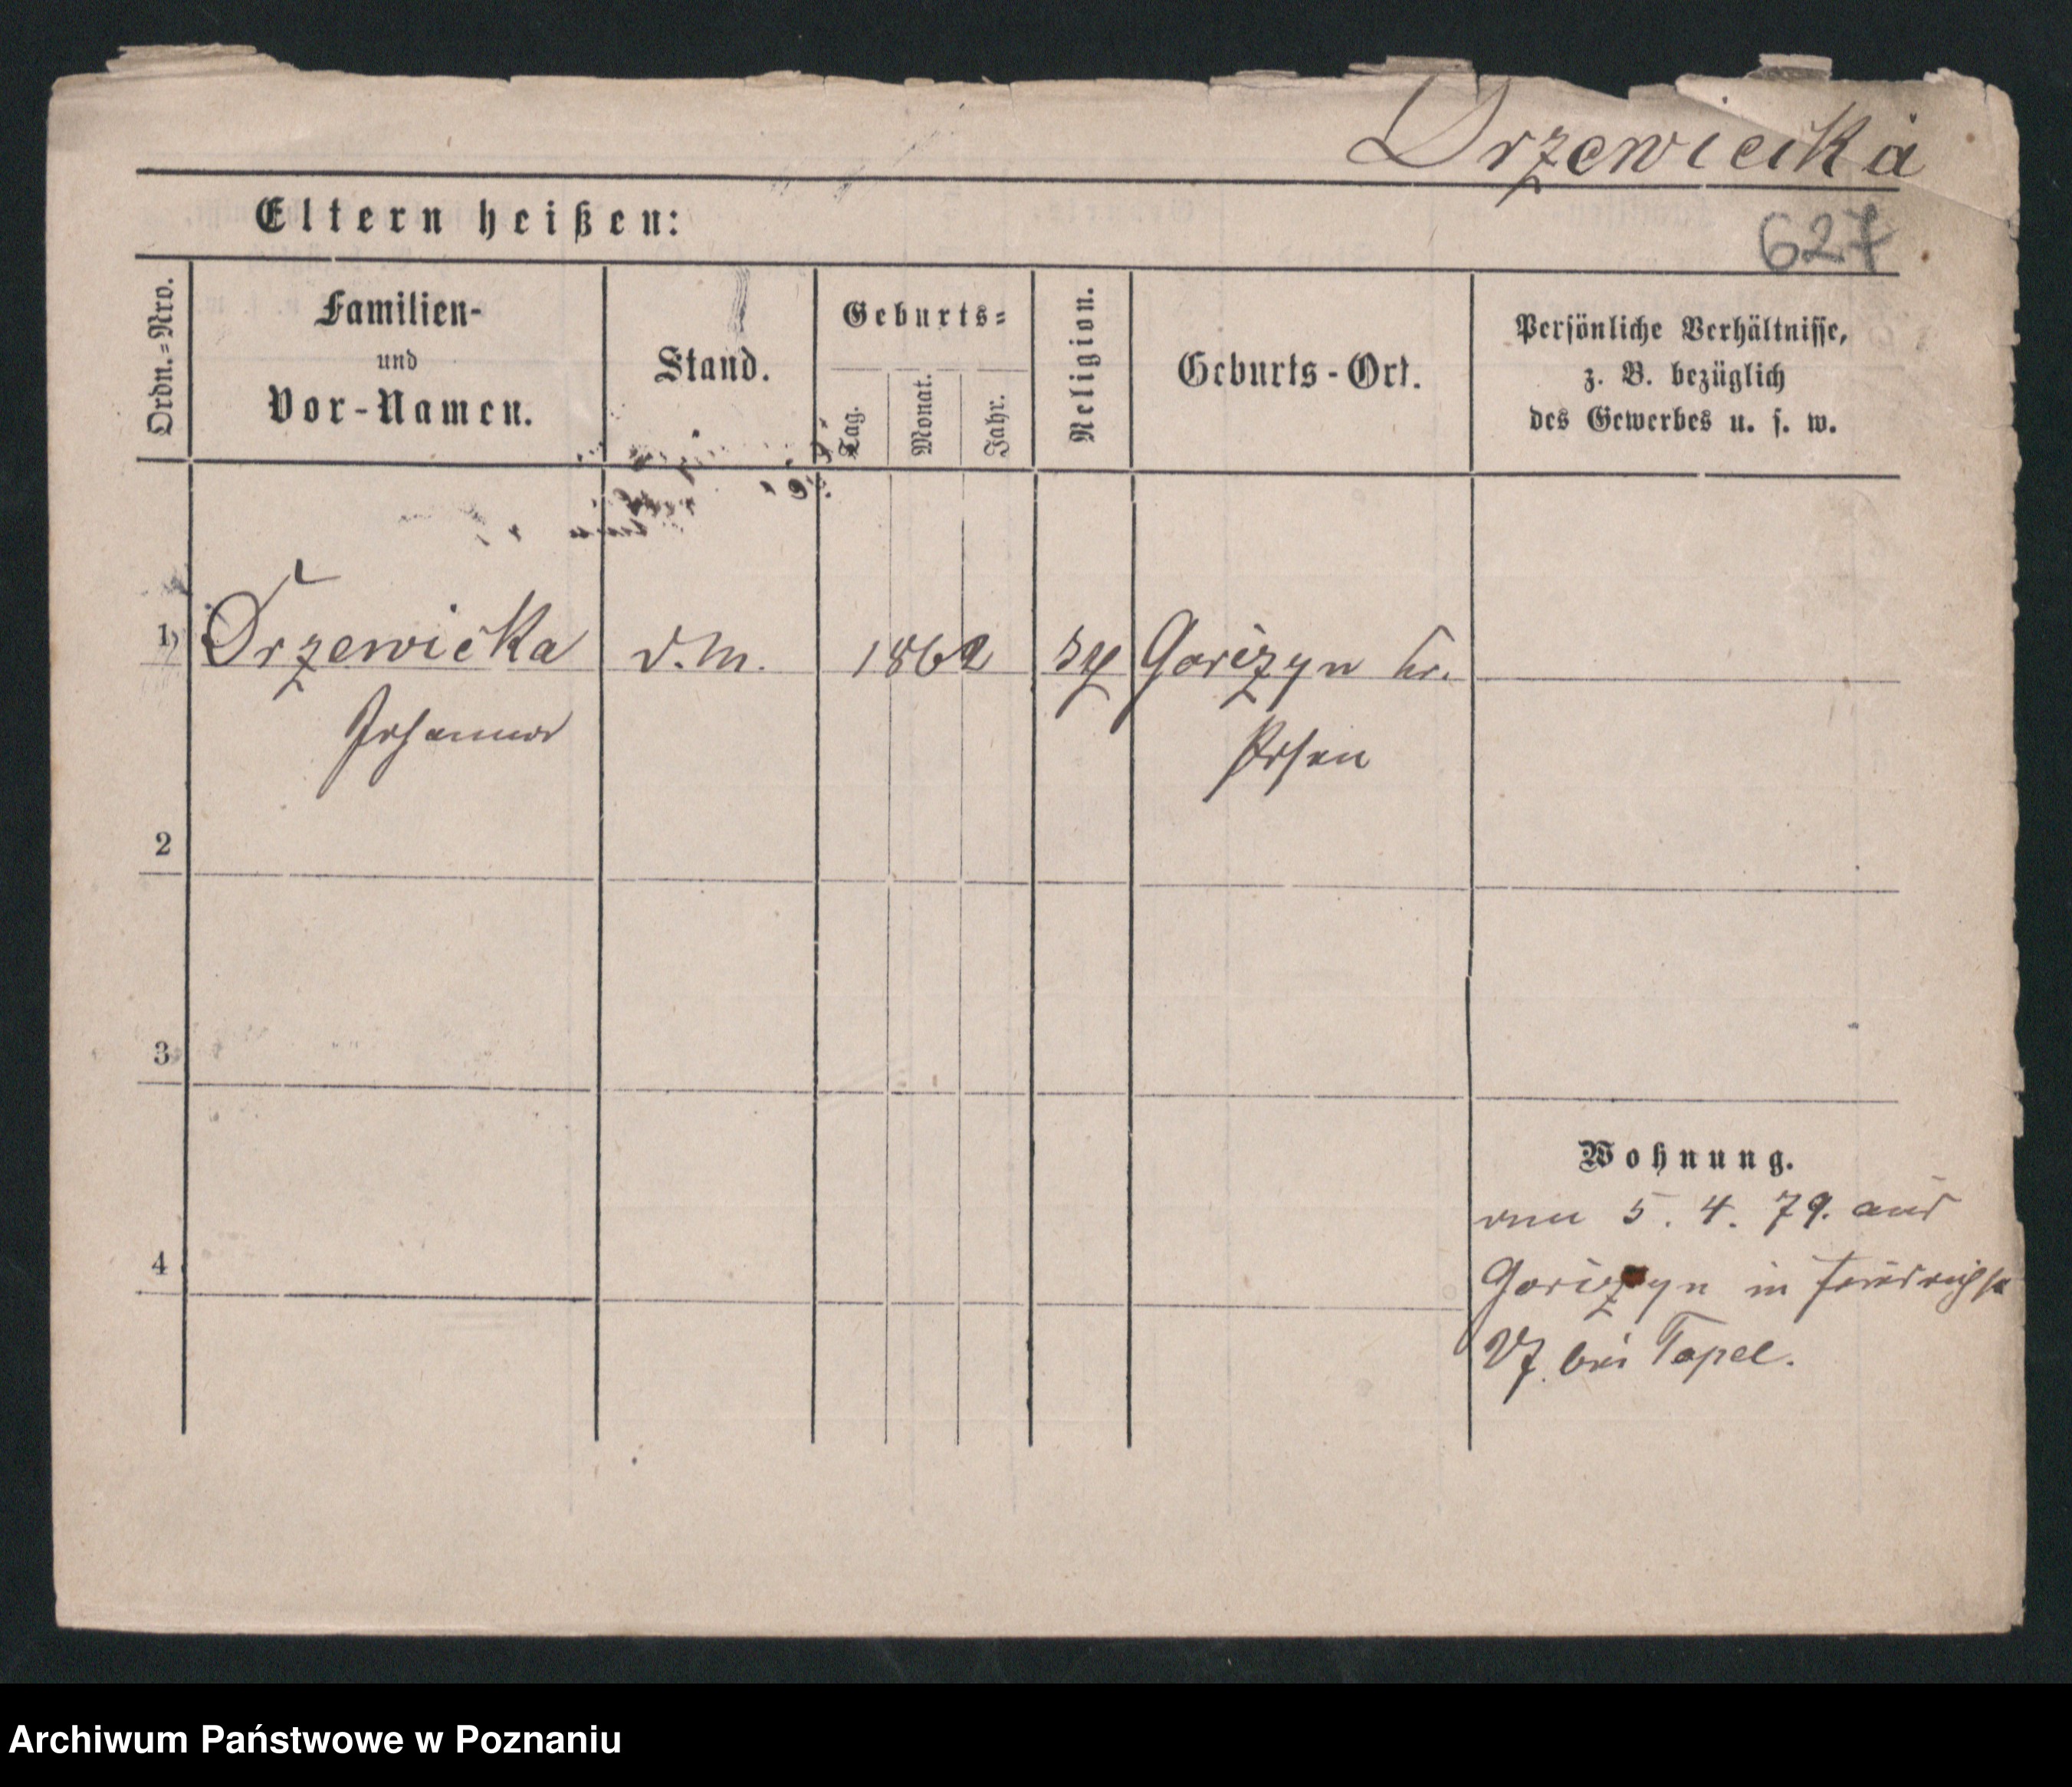 Drzewiecka
Eltern heißen:
627
Ordn.=Nro.
Familien-
und
Vor-Namen.
Stand.
Geburts=
Tag.
Monat.
Jahr.
Religion.
Geburts-Ort.
Persönliche Verhältnisse,
z. B. bezüglich
des Gewerbes u. s. w.
1 Drzewicka d.M. 1862 Gorczyn Kr.
Johanna
Posen
2
3
Wohnung.
vom 5. 4. 79. aus
4
Gorczyn in Friedrichstr
bei Tapel.
Archiwum Państwowe w Poznaniu